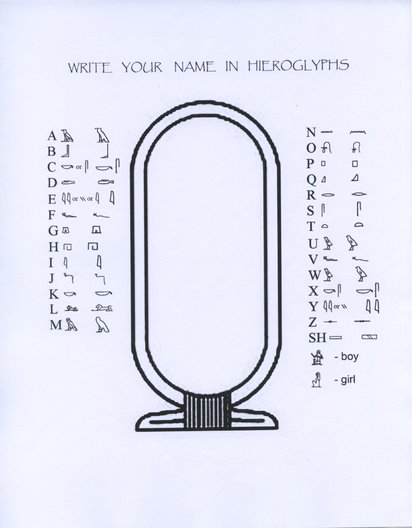 WRITE YOUR NAME IN HIEROGLYPHS
A
B
C or
D
E or or
F
G
H
I
J
K
L
M
N
O
P
Q
R
S
T
U
V
W
X
Y or
Z
SH
- boy
- girl